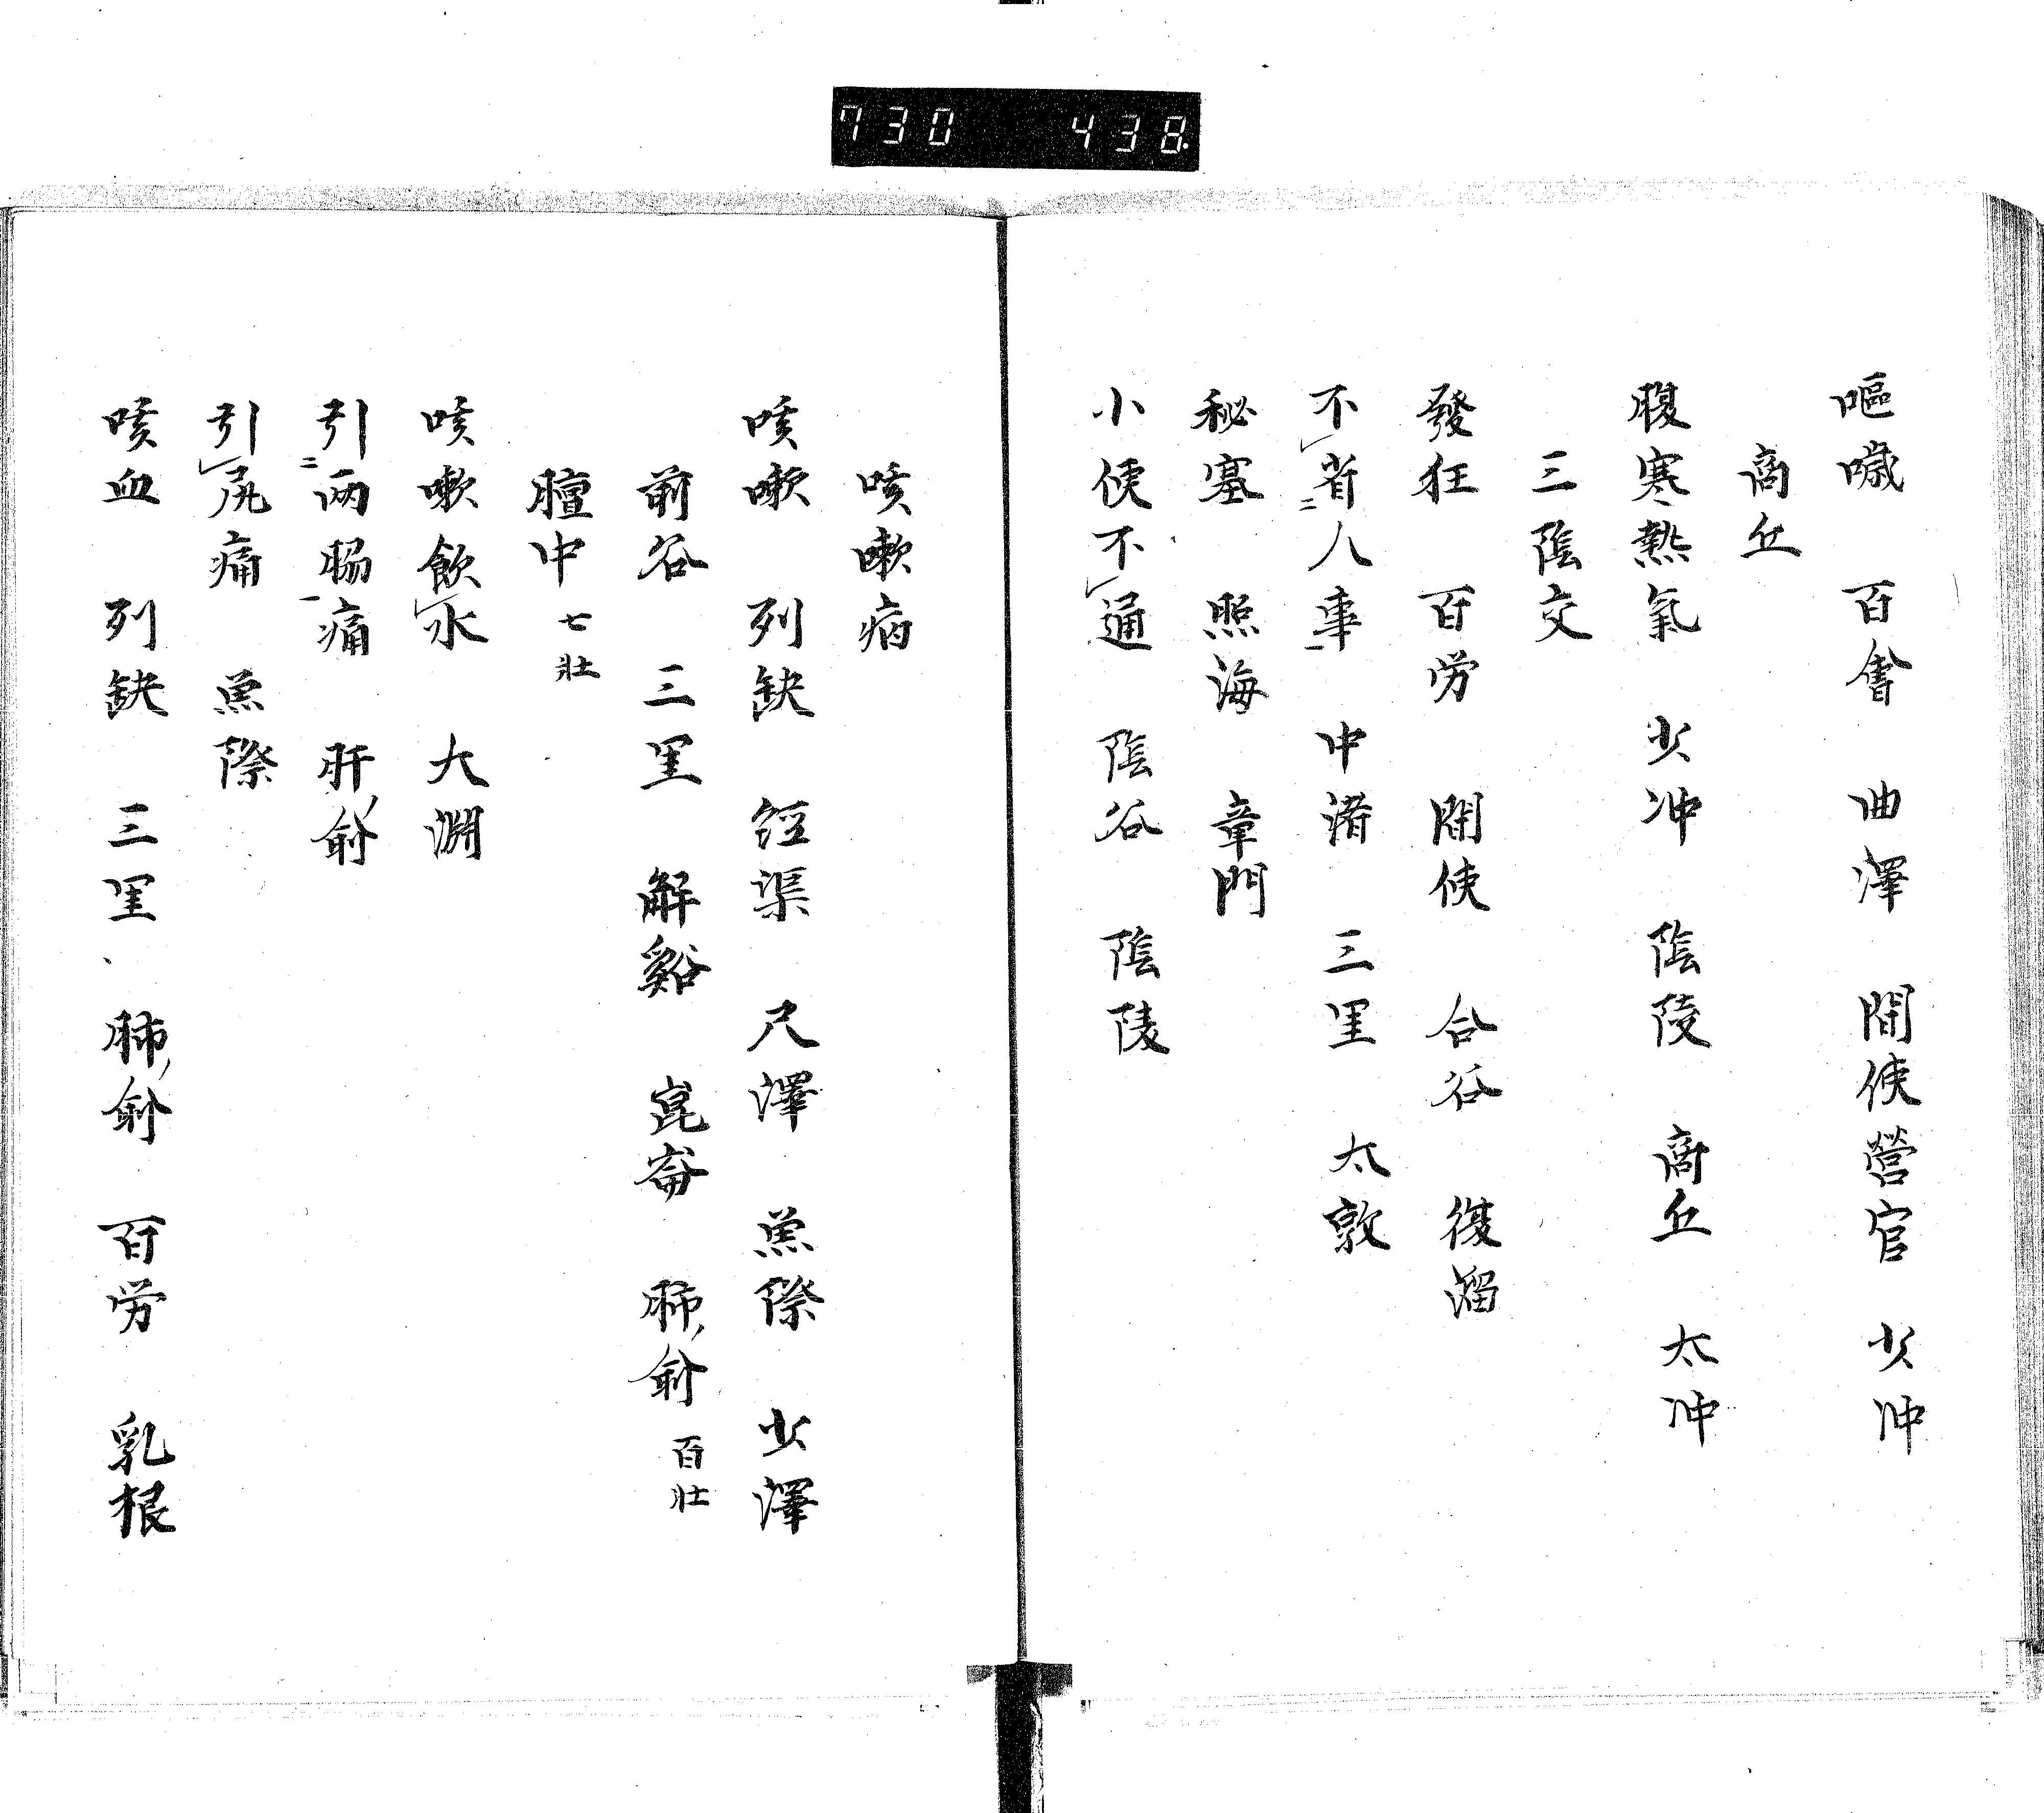 730 438
嘔噦 百會 曲澤 間使 營官 少冲
商丘
腹寒熱氣 少冲 陰陵 商丘 太冲
三陰交
發狂 百労 間使 合谷 復溜
不レ省二人事一 中渚 三里 太敦
秘塞 照海 章門
小便不レ通 陰谷 陰陵
咳嗽病
咳嗽 列缺 經渠 尺澤 魚際 少澤
前谷 三里 解谿 崑崙 肺俞 百壮
膻中 七壮
咳嗽飲レ水 大淵
引二両脇痛一 肝俞
引レ尻痛 魚際
咳血 列缺 三里、肺俞 百労 乳根